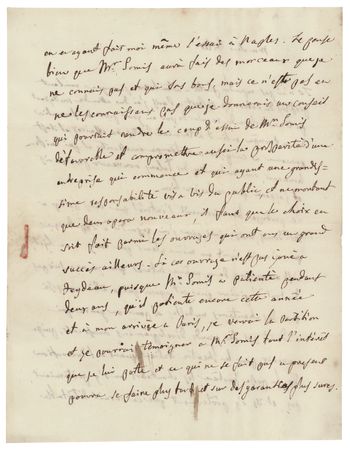 en ayant fait moi même l'essai à Naples. Je pense
bien que Mr. Somis aura fait des morceaux que je
ne connais pas et qui sont bons, mais ce n'est pas en
ne les connaissant pas que je donnerais un conseil
qui pourrait rendre le coup d'essai de Mr. Somis
défavorable et compromettre aussi la prospérité d'une
entreprise qui commence et qui ayant une grandis-
sime responsabilité vis à vis du public, et ne montant
que deux opera nouveaux, il faut que le choix en
soit fait parmi les ouvrages qui ont eu un grand
succès ailleurs. Si cet ouvrage n'est pas joué à
Feydeau, puisque Mr. Somis a patienté pendant
deux ans, qu'il patiente encore cette année
et à mon arrivée à Paris, je verrai la partition
et je pourrai témoigner à Mr. Somis tout l'intérêt
que je lui porte et ce qui ne se fait pas à present
pourra se faire plus tard et sur des garanties plus sures.